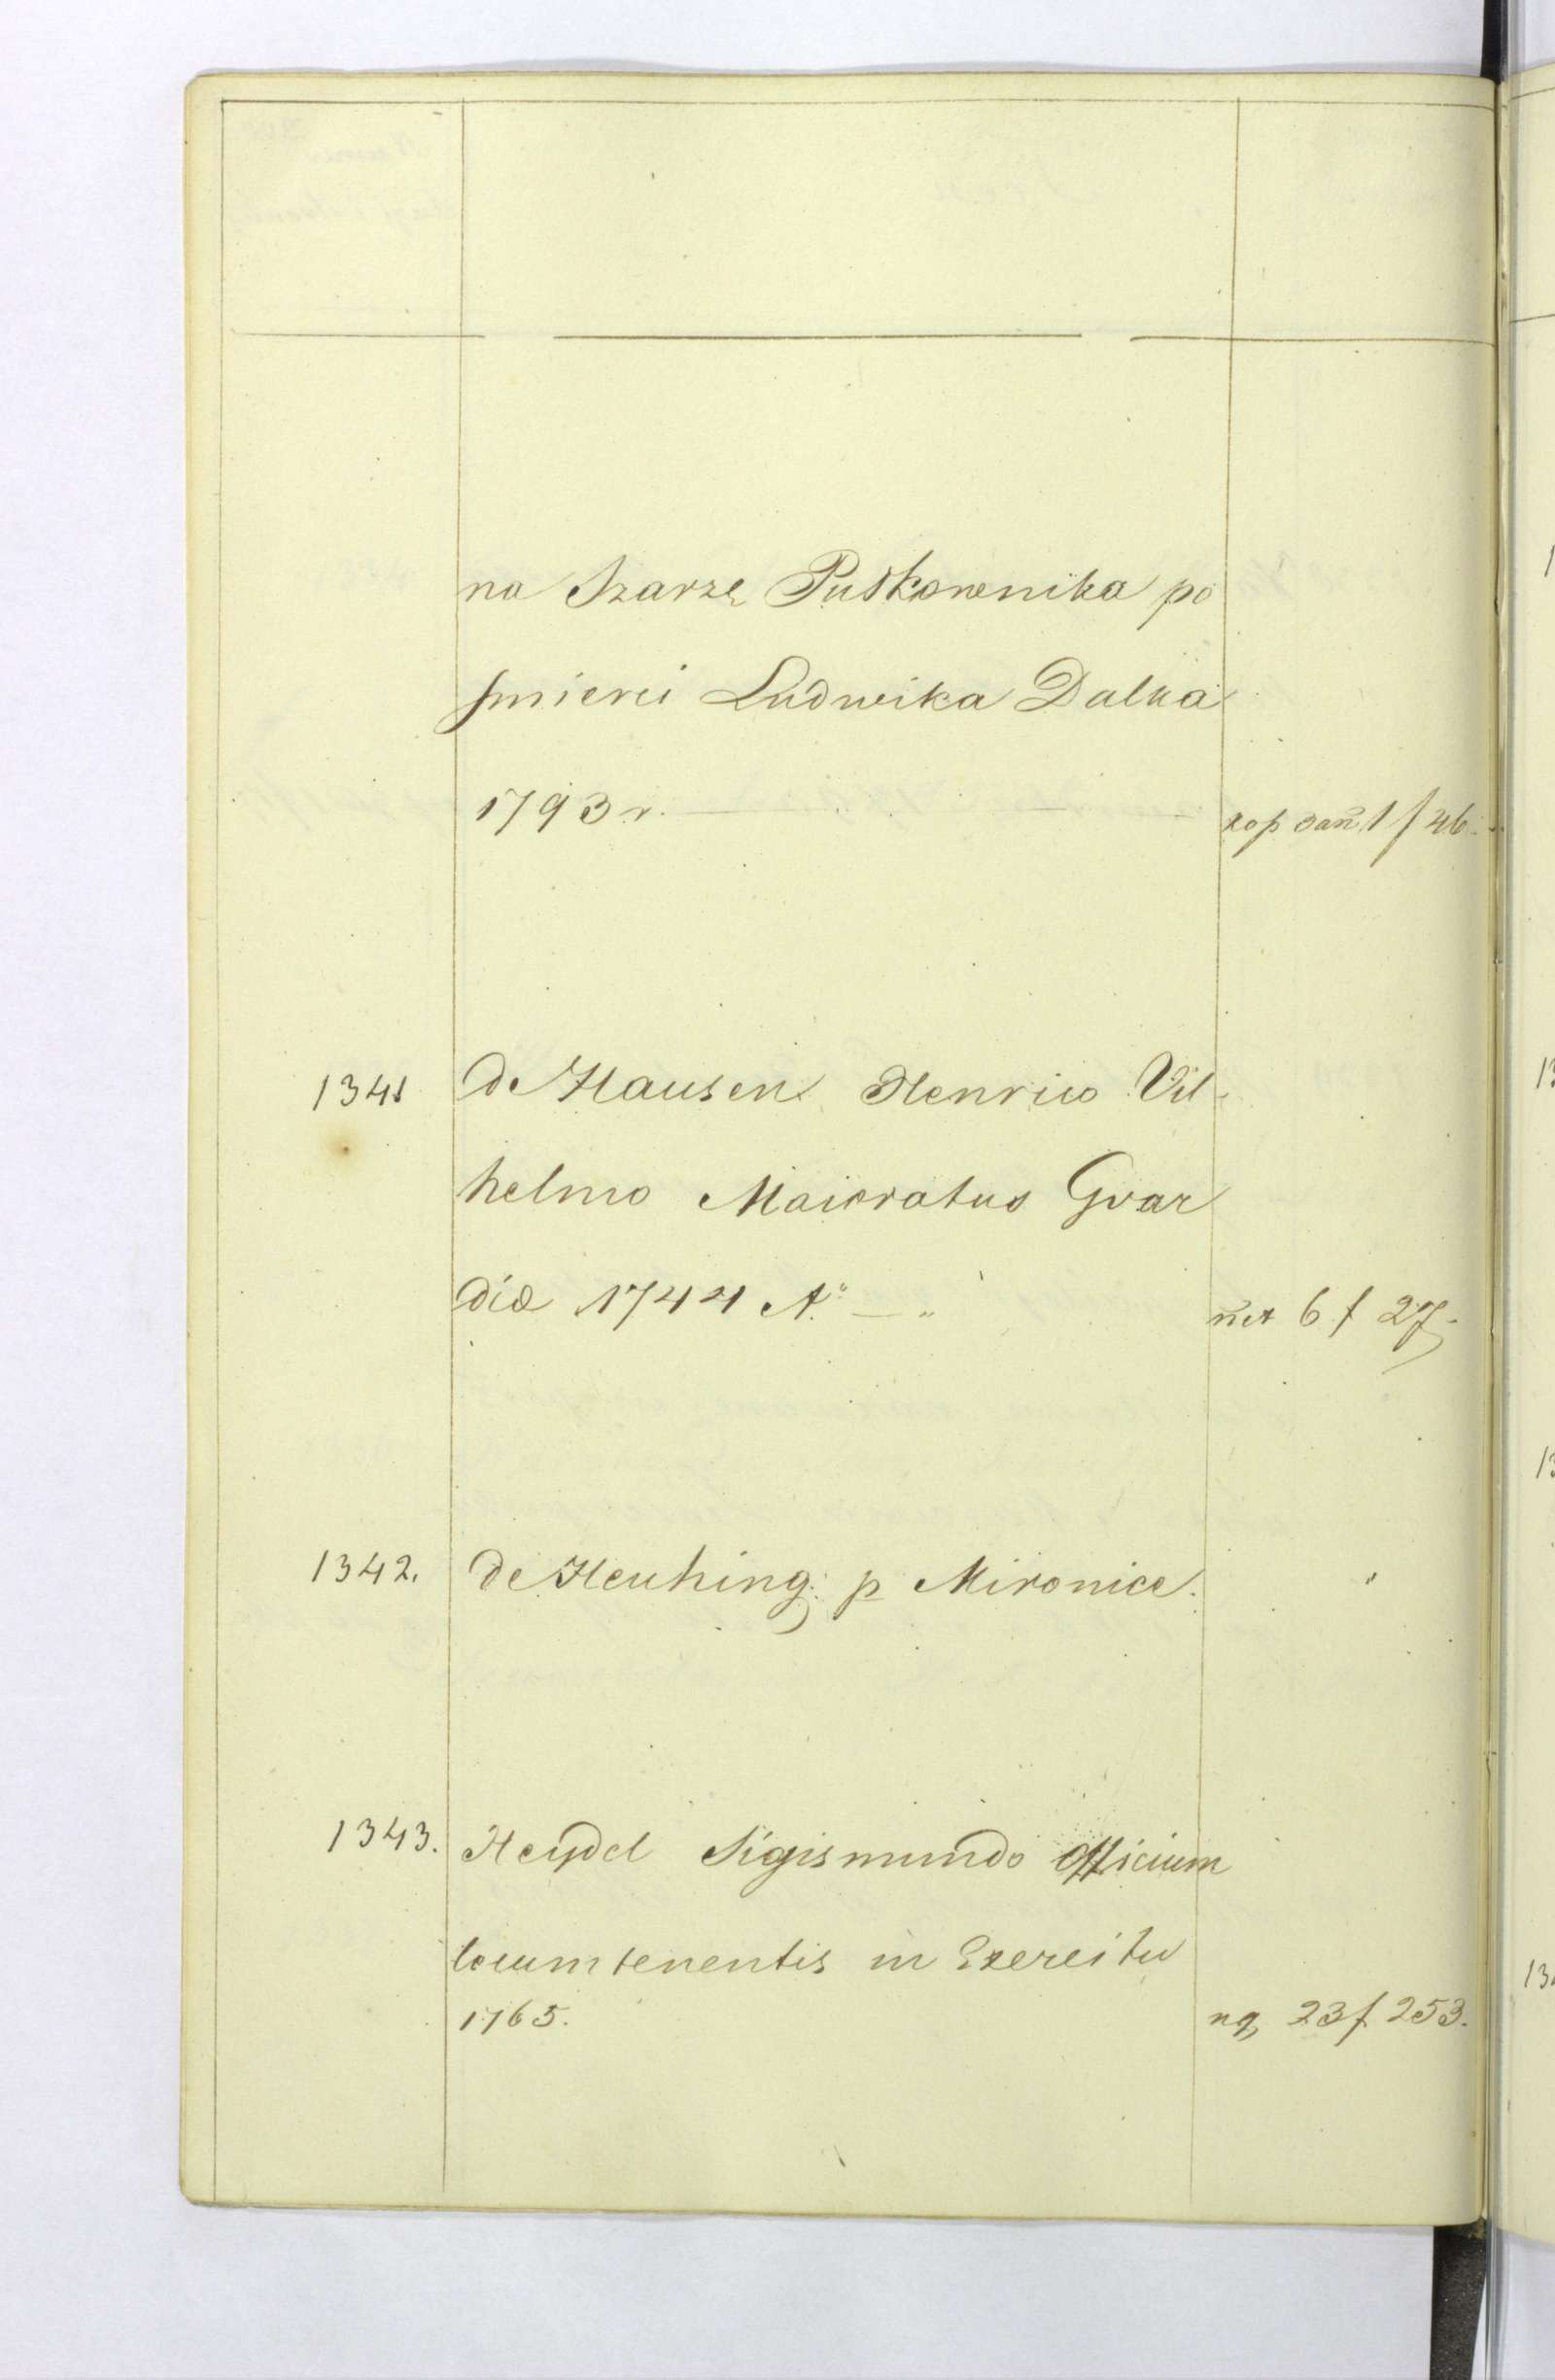 na Szarzę Pułkownika po
śmierci Ludwika Dalka
1793 r. kop 1 f 46.
1341 de Hausen Henrico Vil-
helmo Maioratus Gvar
diæ 1744 A° — " met 6 f 27.
1342. de Heuhing: p Mironice. "
1343. Heydel Sigismundo officium
locumtenentis in Exercitu
1765. ng 23 f. 253.